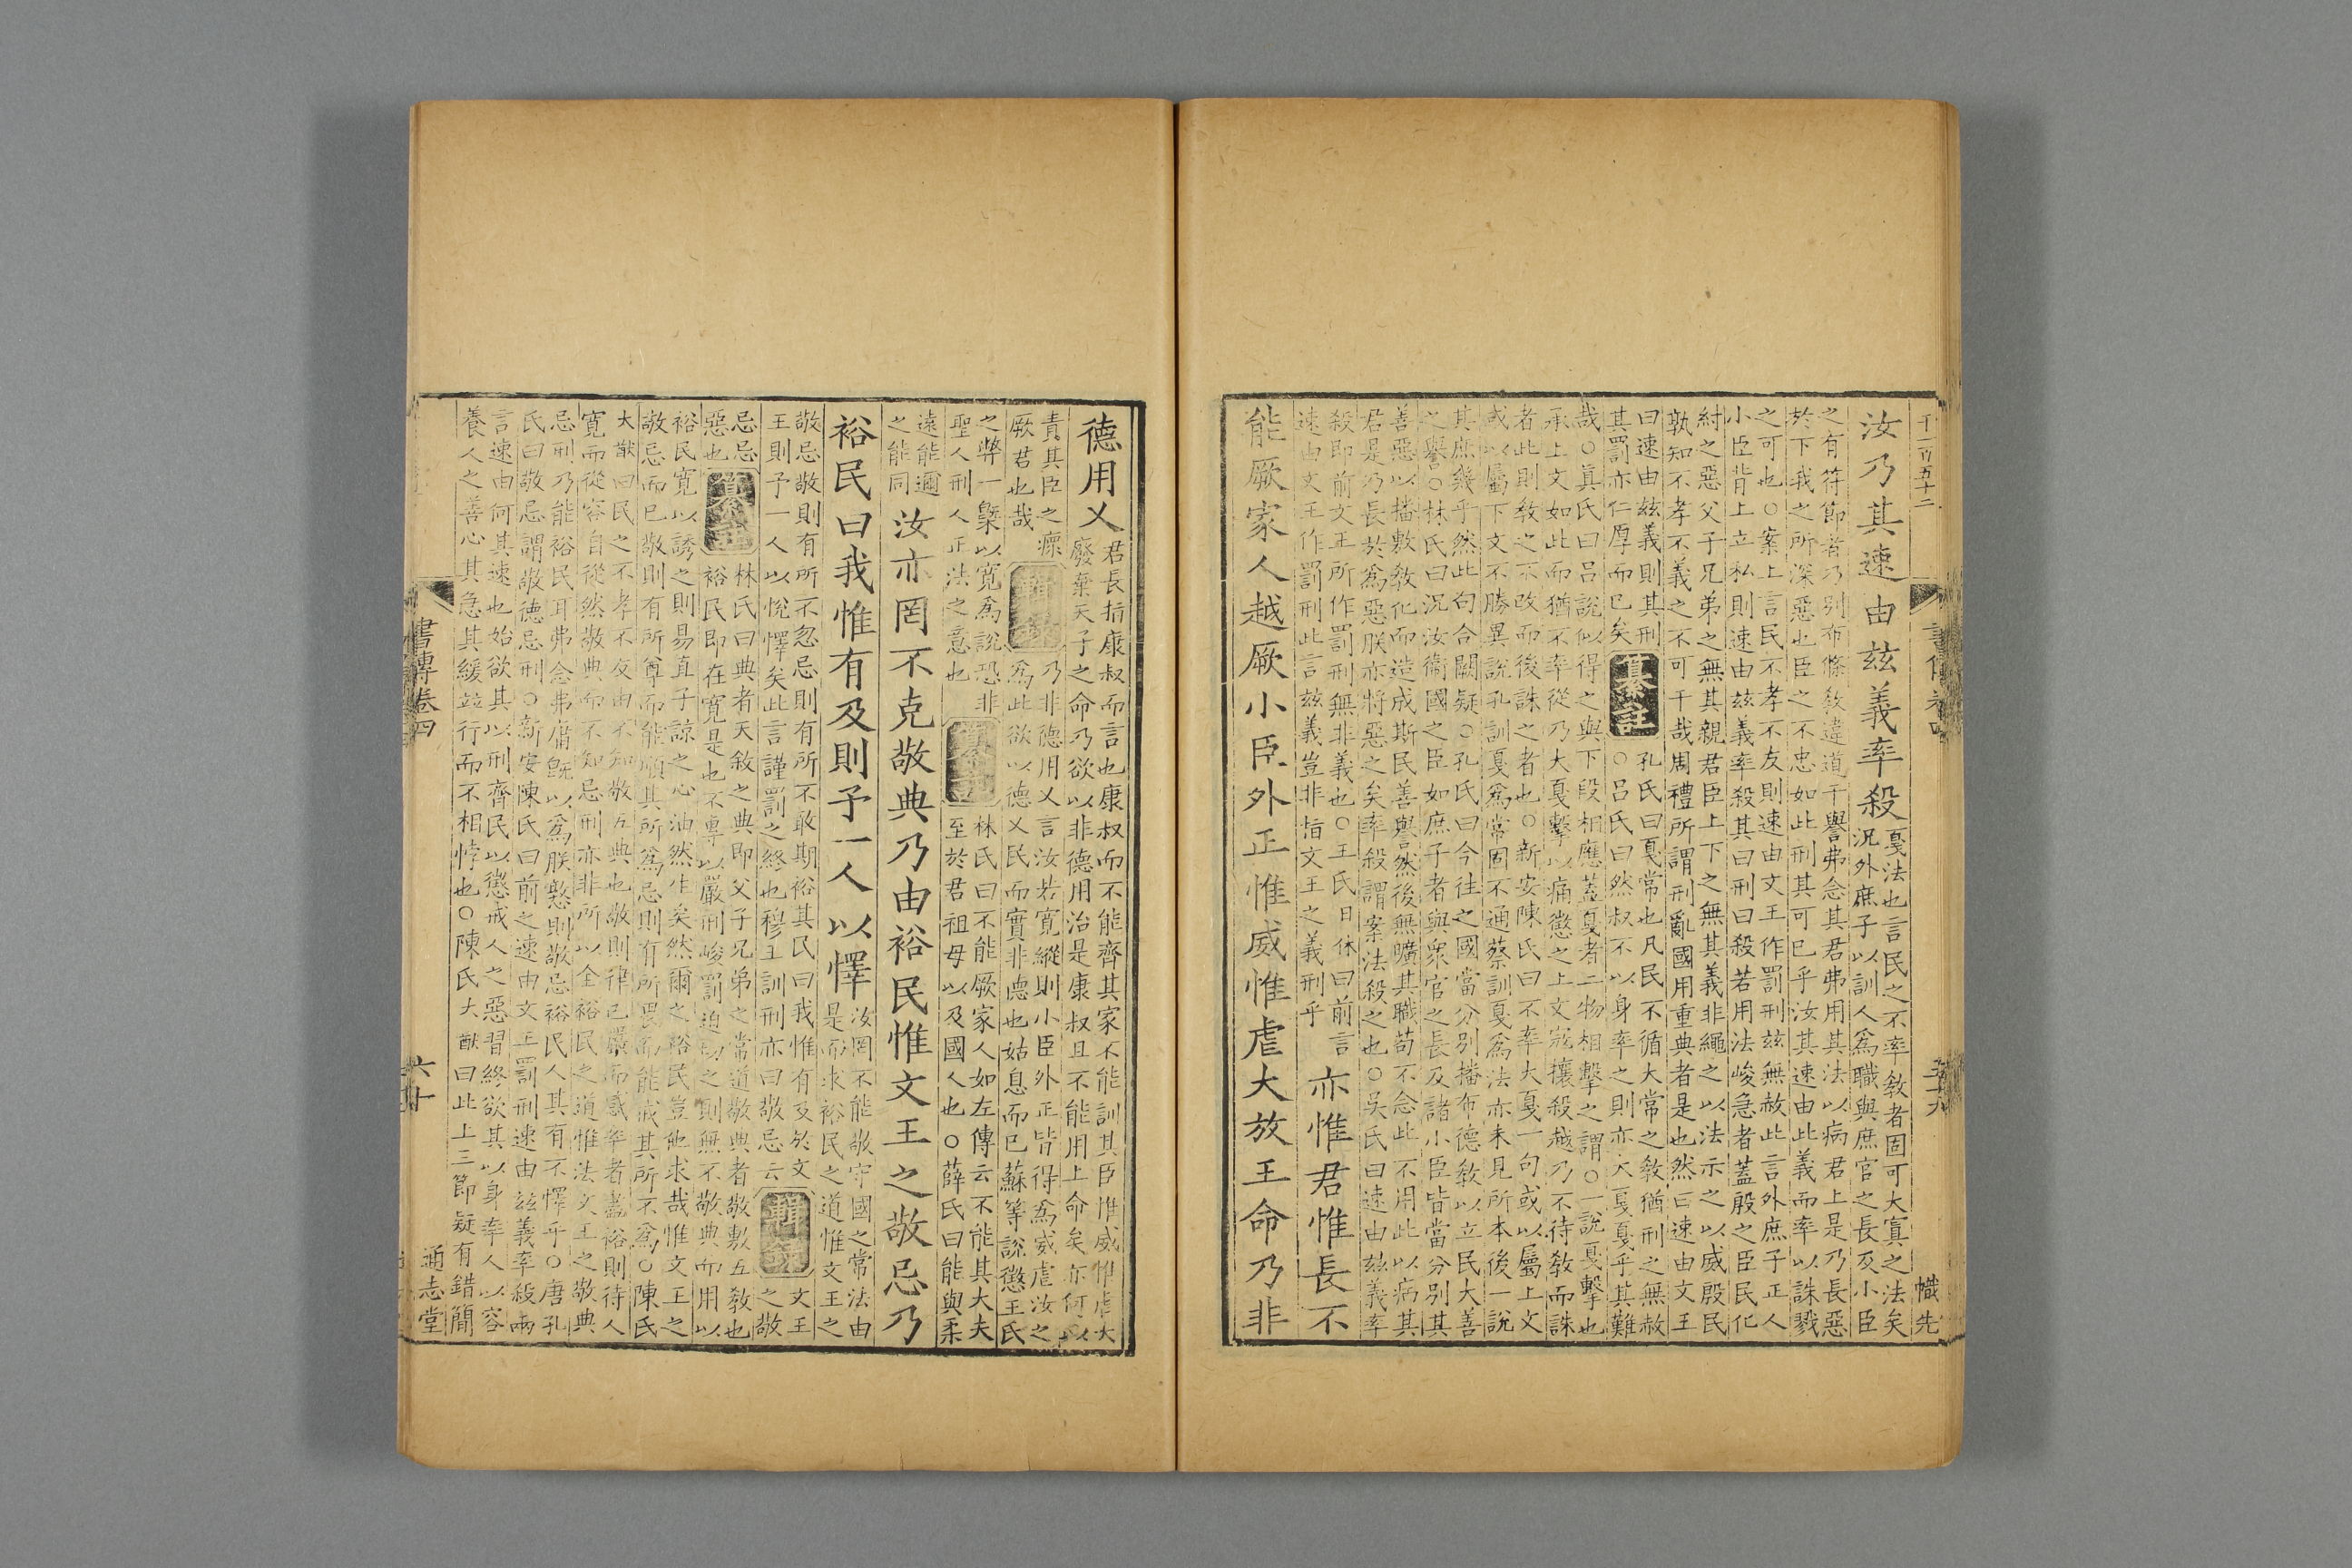 千一百五十二
書傳卷四
五十九
幟先
汝乃其速由茲義率殺
戛法也言民之不率敎者固可大寘之法矣
況外庶子以訓人爲職與庶官之長及小臣
之有符節者乃別布條敎違道干譽弗念其君弗用其法以病君上是乃長惡
於下我之所深惡也臣之不忠如此刑其可已乎汝其速由此義而率以誅戮
之可也○案上言民不孝不友則速由文王作罰刑茲無赦此言外庶子正人
小臣背上立私則速由茲義率殺其曰刑曰殺若用法峻急者蓋殷之臣民化
紂之惡父子兄弟之無其親君臣上下之無其義非繩之以法示之以威殷民
孰知不孝不義之不可干哉周禮所謂刑亂國用重典者是也然曰速由文王
曰速由茲義則其刑
其罰亦仁厚而已矣
纂註
孔氏曰戛常也凡民不循大常之敎猶刑之無赦
○呂氏曰然叔不以身率之則亦大戛戛乎其難
哉○眞氏曰呂說似得之與下段相應蓋戛者二物相擊之謂○一說戛擊也
承上文如此而猶不率從乃大戛擊以痛懲之上文寇攘殺越乃不待敎而誅
者此則敎之不改而後誅之者也○新安陳氏曰不率大戛一句或以屬上文
或以屬下文不勝異說孔訓戛爲常固不通蔡訓戛爲法亦未見所本後一說
其庶幾乎然此句合闕疑○孔氏曰今往之國當分別播布德敎以立民大善
之譽○林氏曰況汝衞國之臣如庶子者與衆官之長及諸小臣皆當分別其
善惡以播敷敎化而造成斯民善譽然後無曠其職苟不念此不用此以病其
君是乃長於爲惡朕亦將惡之矣率殺謂案法殺之也○吳氏曰速由茲義率
殺即前文王所作罰刑無非義也○王氏日休曰前言
速由文王作罰刑此言茲義豈非指文王之義刑乎
亦惟君惟長不
能厥家人越厥小臣外正惟威惟虐大放王命乃非
德用乂
君長指康叔而言也康叔而不能齊其家不能訓其臣惟威惟虐大
廢棄天子之命乃欲以非德用治是康叔且不能用上命矣亦何以
責其臣之瘝
厥君也哉
輯錄
乃非德用乂言汝若寬縱則小臣外正皆得爲威虐汝之
爲此欲以德乂民而實非德也姑息而已蘇等說懲王氏
之弊一槩以寬爲說恐非
聖人刑人正法之意也
纂註
林氏曰不能厥家人如左傳云不能其大夫
至於君祖母以及國人也○薛氏曰能與柔
遠能邇
之能同
汝亦罔不克敬典乃由裕民惟文王之敬忌乃
裕民曰我惟有及則予一人以懌
汝罔不能敬守國之常法由
是而求裕民之道惟文王之
敬忌敬則有所不忽忌則有所不敢期裕其民曰我惟有及於文王
王則予一人以悅懌矣此言謹罰之終也穆王訓刑亦曰敬忌云
輯錄
之敬
忌忌
惡也
纂註
林氏曰典者天敘之典即父子兄弟之常道敬典者敬敷五敎也
裕民即在寬是也不專以嚴刑峻罰迫切之則無不敬典而用以
裕民寬以誘之則易直子諒之心油然生矣然爾之裕民豈他求哉惟文王之
敬忌而已敬則有所尊而能順其所爲忌則有所畏而能戒其所不爲○陳氏
大猷曰民之不孝不友由不知敬五典也敬則律己嚴而感率者蓋裕則待人
寬而從容自從然敬典而不知忌刑亦非所以全裕民之道惟法文王之敬典
忌刑乃能裕民耳弗念弗庸旣以爲朕憝則敬忌裕民人其有不懌乎○唐孔
氏曰敬忌謂敬德忌刑○新安陳氏曰前之速由文王罰刑速由茲義率殺兩
言速由何其速也始欲其以刑齊民以懲戒人之惡習終欲其以身率人以容
養人之善心其急其緩竝行而不相悖也○陳氏大猷曰此上三節疑有錯簡
書傳卷四
六十
通志堂